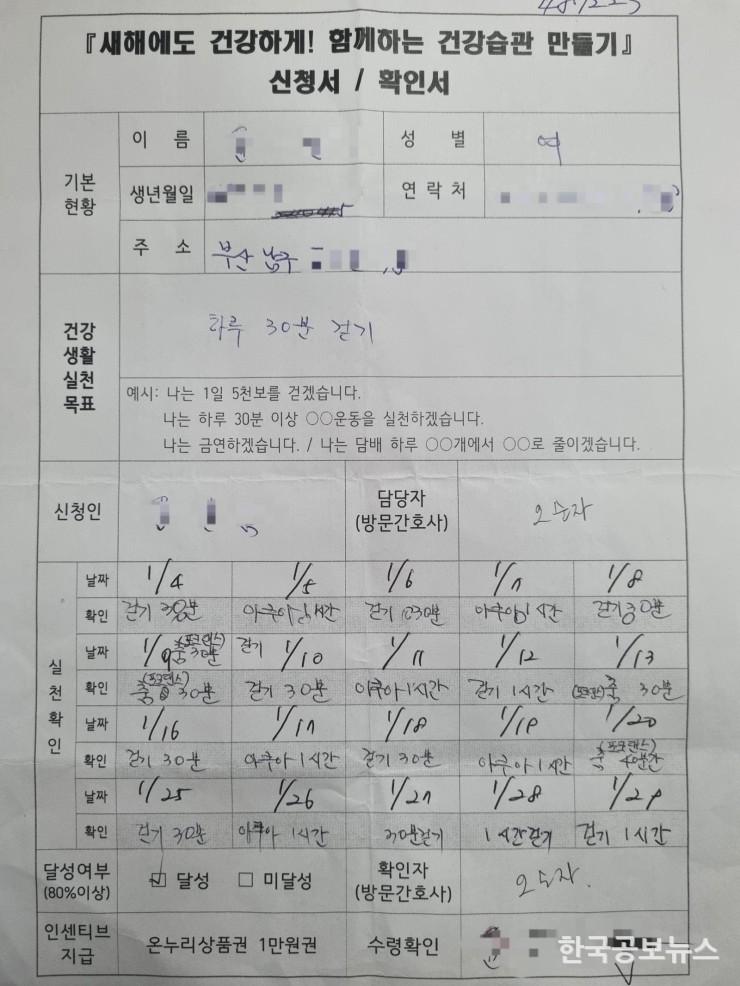 『새해에도 건강하게! 함께하는 건강습관 만들기』
신청서 / 확인서
기본 현황
이 름
성 별 여
생년월일
연 락 처
주 소 부산 남구
건강 생활 실천 목표
하루 30분 걷기
예시: 나는 1일 5천보를 걷겠습니다.
나는 하루 30분 이상 ○○운동을 실천하겠습니다.
나는 금연하겠습니다. / 나는 담배 하루 ○○개에서 ○○로 줄이겠습니다.
신청인
담당자
(방문간호사)
실천확인
날짜 1/4 1/5 1/6 1/7 1/8
확인 걷기 30분 아쿠아 1시간 걷기 30분 아쿠아 1시간 걷기 30분
날짜 1/9 (포크댄스) 춤 30분 걷기 1/10 1/11 1/12 1/13
확인 (포크댄스) 춤 30분 걷기 30분 아쿠아 1시간 걷기 1시간 춤 30분
날짜 1/16 1/17 1/18 1/19 1/20
확인 걷기 30분 아쿠아 1시간 걷기 30분 아쿠아 1시간 (포크댄스) 춤 40분간
날짜 1/25 1/26 1/27 1/28 1/29
확인 걷기 30분 아쿠아 1시간 30분걷기 1시간걷기 걷기 1시간
달성여부
(80%이상)
☑ 달성 □ 미달성
확인자
(방문간호사)
인센티브 지급
온누리상품권 1만원권
수령확인
한국공보뉴스